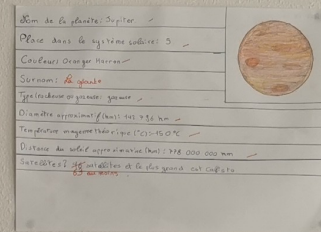 Nom de la planète: Jupiter
Place dans le système solaire: 5
Couleur: Oranger Marron
Surnom: La géante
Type (rocheuse ou gazeuse): gazeuse
Diamètre approximatif (km): 142 km
Température moyenne théorique (°C): -150°C
Distance du soleil approximative (km): 778 000 000 km
Satellites?: satellites et le plus grand est
au moins